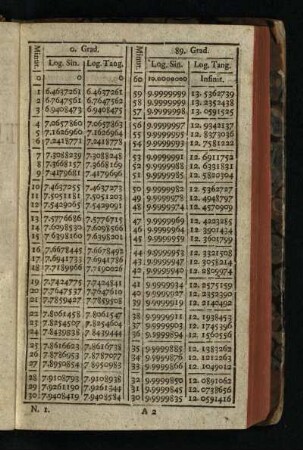 Minut. 0. Grad. Minut. 89. Grad.
Log. Sin. Log. Tang. Log. Sin. Log. Tang.
0 0 0 60 10.0000000 Infinit.
1 6.4637261 6.4637261 59 9.9999999 13.5362739
2 6.7647561 6.7647562 58 9.9999999 13.2352438
3 6.9408473 6.9408475 57 9.9999998 13.0591525
4 7.0657860 7.0657863 56 9.9999997 12.9342137
5 7.1626960 7.1626964 55 9.9999995 12.8373036
6 7.2418771 7.2418778 54 9.9999993 12.7581222
7 7.3088239 7.3088248 53 9.9999991 12.6911752
8 7.3668157 7.3668169 52 9.9999988 12.6331831
9 7.4179681 7.4179696 51 9.9999985 12.5820304
10 7.4637255 7.4637273 50 9.9999982 12.5362727
11 7.5051181 7.5051203 49 9.9999978 12.4948797
12 7.5429065 7.5429091 48 9.9999974 12.4570909
13 7.5776686 7.5776715 47 9.9999969 12.4223285
14 7.6098530 7.6098566 46 9.9999964 12.3901434
15 7.6398160 7.6398201 45 9.9999959 12.3601799
16 7.6678445 7.6678492 44 9.9999953 12.3321508
17 7.6941733 7.6941786 43 9.9999947 12.3058214
18 7.7189966 7.7190026 42 9.9999940 12.2809974
19 7.7424775 7.7424841 41 9.9999934 12.2575159
20 7.7647537 7.7647610 40 9.9999927 12.2352390
21 7.7859427 7.7859508 39 9.9999919 12.2140492
22 7.8061458 7.8061547 38 9.9999911 12.1938453
23 7.8254507 7.8254604 37 9.9999903 12.1745396
24 7.8439338 7.8439444 36 9.9999894 12.1560556
25 7.8616623 7.8616738 35 9.9999885 12.1383262
26 7.8786953 7.8787077 34 9.9999876 12.1212923
27 7.8950854 7.8950988 33 9.9999866 12.1049012
28 7.9108793 7.9108938 32 9.9999856 12.0891062
29 7.9261190 7.9261344 31 9.9999845 12.0738656
30 7.9408419 7.9408584 30 9.9999835 12.0591416
N. 1. A 2